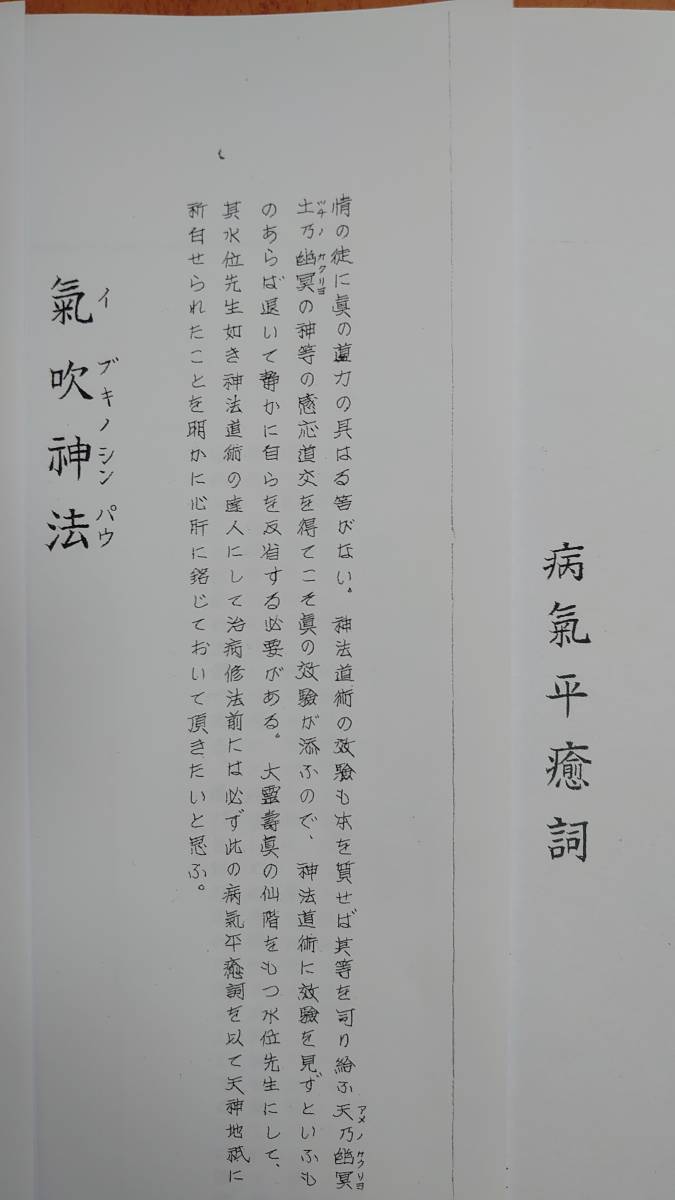 病氣平癒詞
情の徒に眞の靈力の具はる筈がない。神法道術の效驗も本を質せば其等を司り給ふ天乃幽冥
アメノカクリヨ
土乃幽冥の神等の感応道交を得てこそ眞の效驗が添ふので、神法道術に效驗を見ずといふも
ツチノカクリヨ
のあらば退いて静かに自らを反省する必要がある。大靈壽眞の仙階をもつ水位先生にして、
其水位先生如き神法道術の達人にして治病修法前には必ず此の病氣平癒詞を以て天神地祇に
祈白せられたことを明かに心肝に銘じておいて頂きたいと思ふ。
氣吹神法
イブキノシンパウ